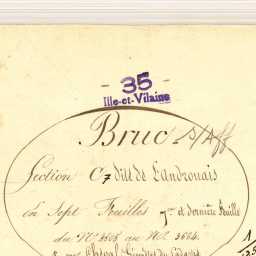 - 35 -
Ille-et-Vilaine
Bruc S/Aff
Section C7 dite de Landrouais
En Sept Feuilles 7me et dernière feuille
du No 3505 au No 3664.
1